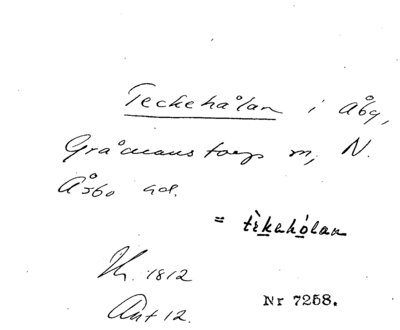 Teckehålan i Åby,
Gråmanstorps m, N.
Åsbo hd.
= tìkehólan
Kr. 1812
Ant 12.
Nr 7258.